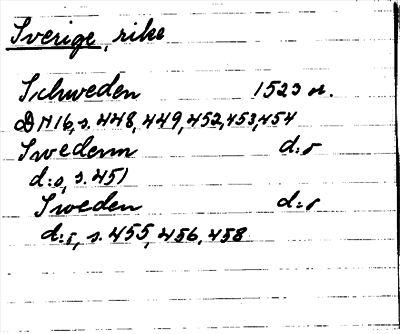 Sverige, rike
Schweden 1523 or.
DN 16, s. 448, 449, 452, 453, 454
Swederm d:o
d:o, s. 451
Sweden d:o
d:o, s. 455, 456, 458